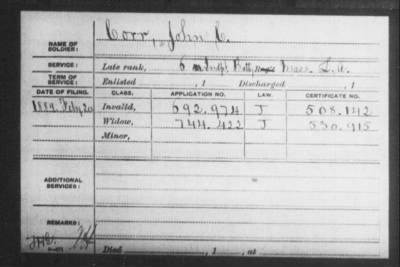 NAME OF SOLDIER: Corr, John C.
SERVICE: Late rank, 6 Batty, Mass. L. A.
TERM OF SERVICE: Enlisted , 1 Discharged , 1
DATE OF FILING. CLASS. APPLICATION NO. LAW. CERTIFICATE NO.
1889. Feby 20 Invalid, 692.974 J 508.142
Widow, 744.422 J 530.915
Minor,
ADDITIONAL SERVICES:
REMARKS:
Died , 1 , at